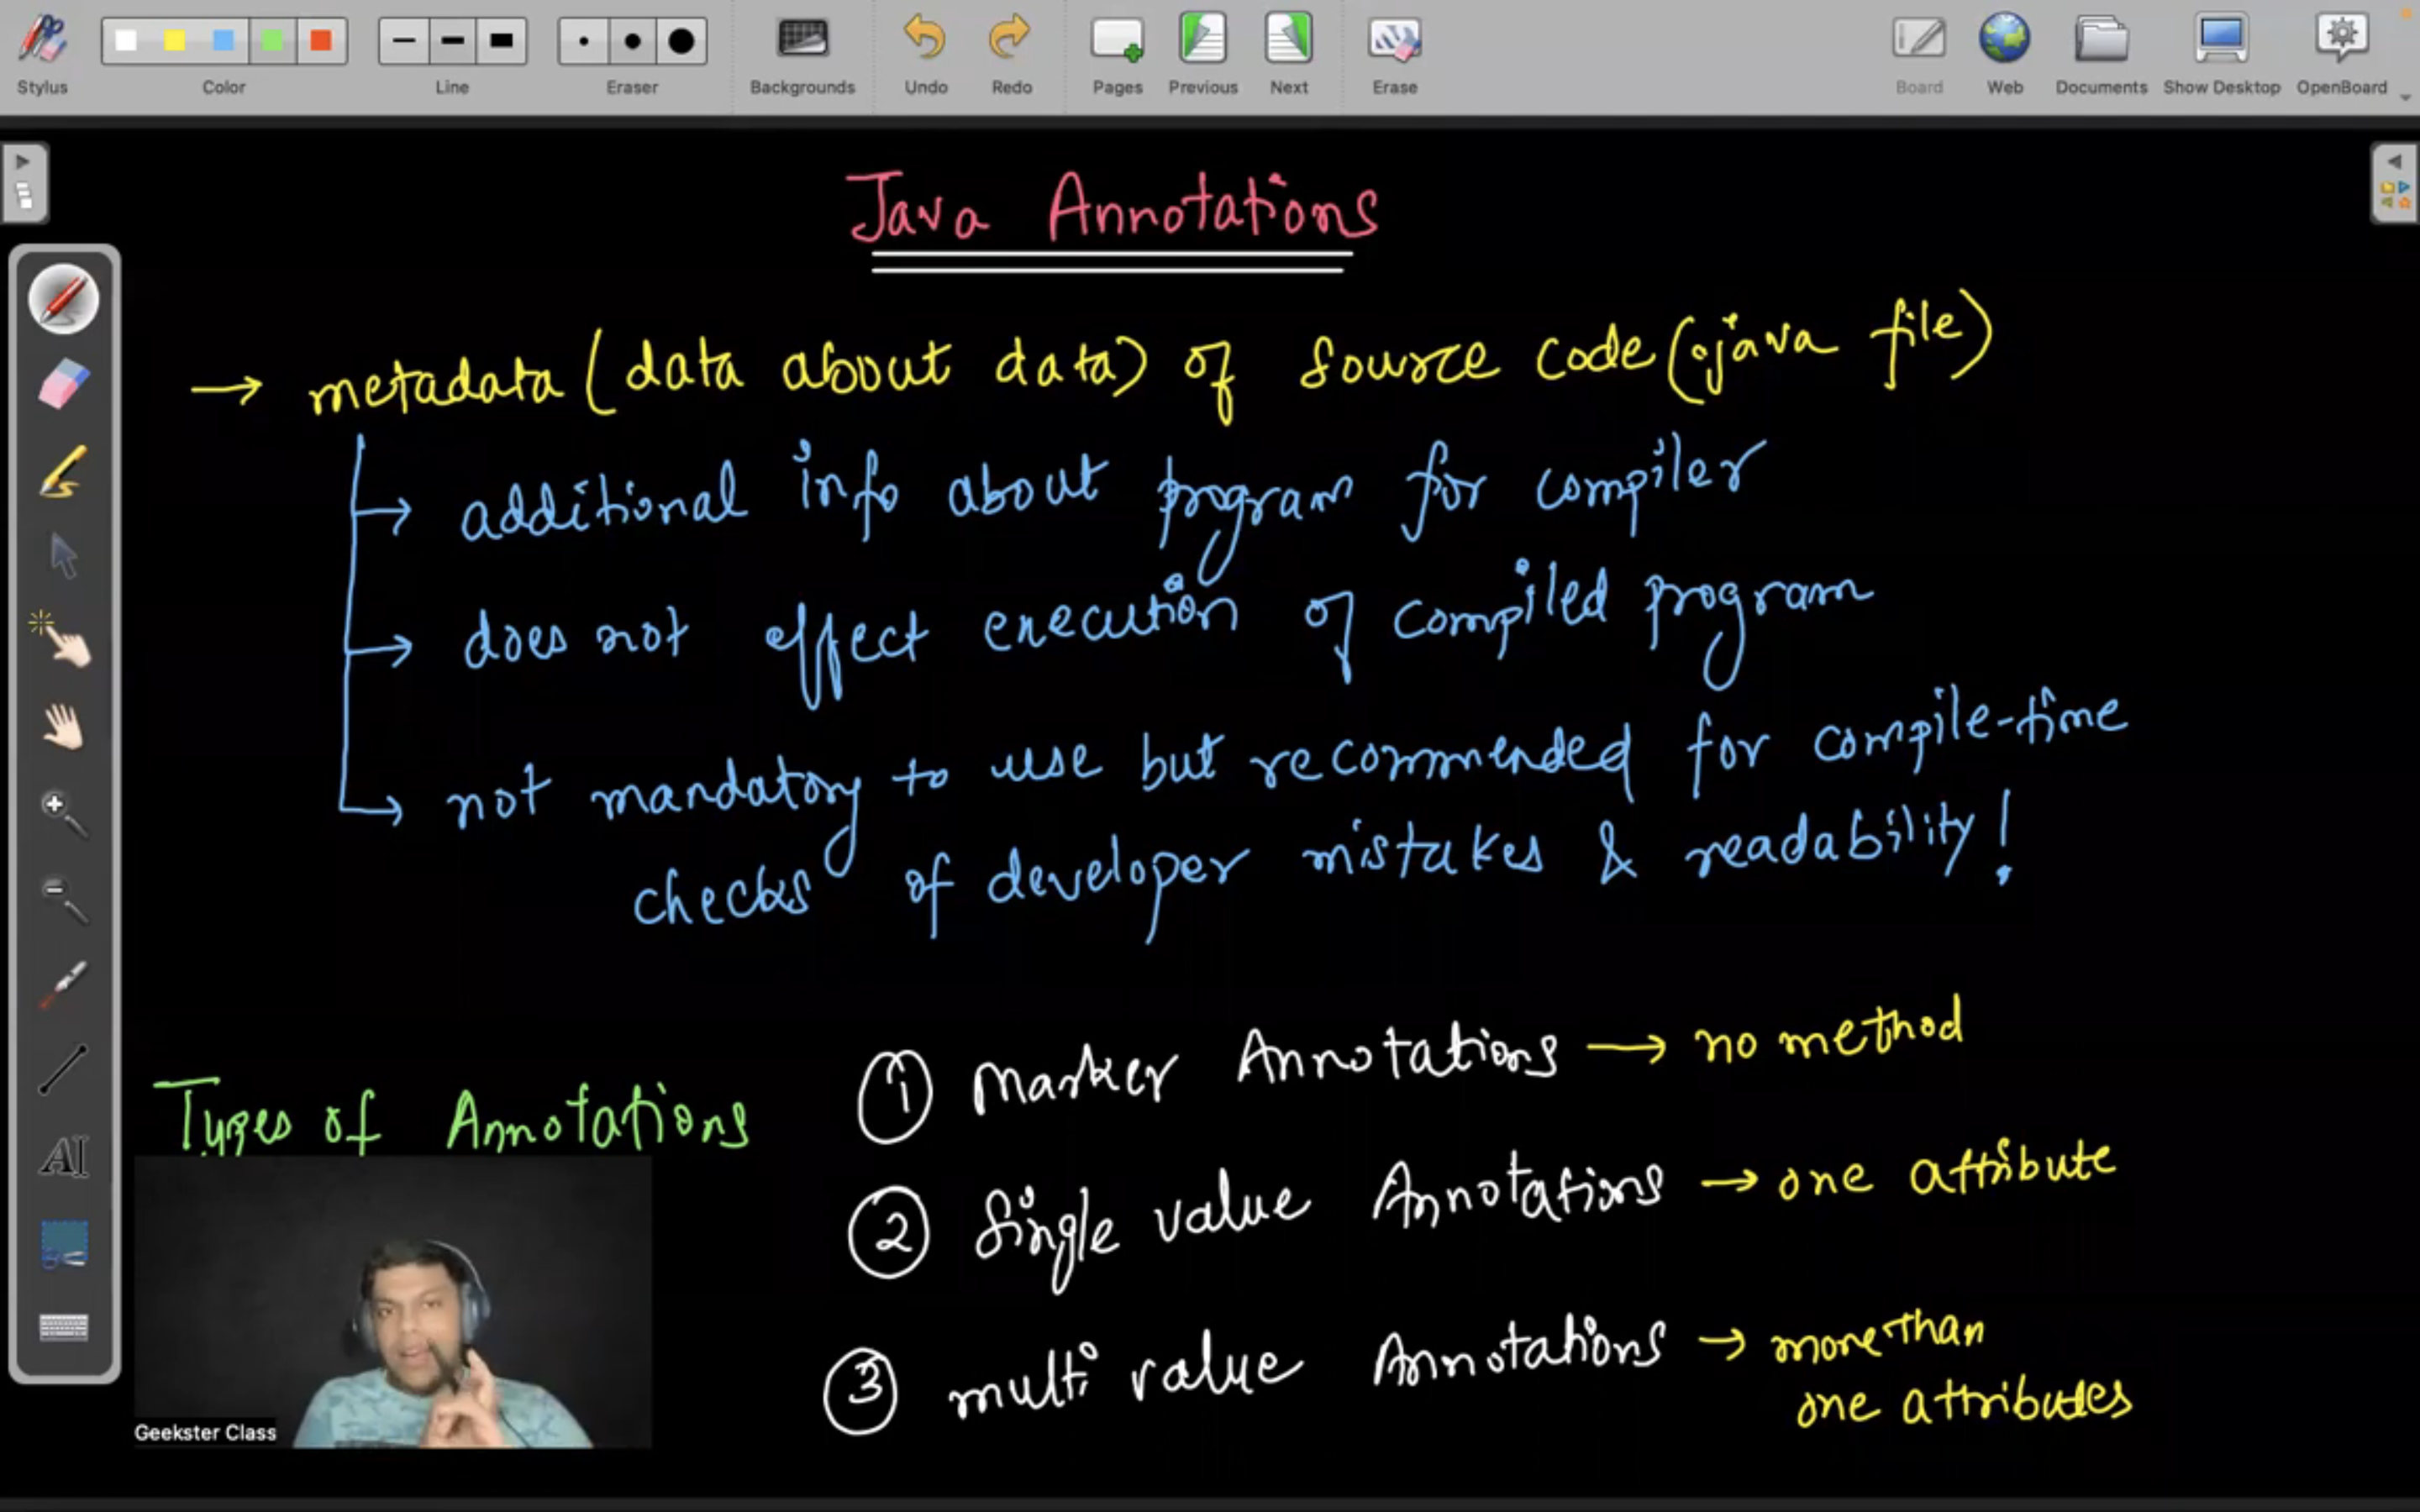 Stylus
Color
Line
Eraser
Backgrounds
Undo
Redo
Pages
Previous
Next
Erase
Board
Web
Documents
Show Desktop
OpenBoard
Java Annotations
→ metadata (data about data) of source code (.java file)
→ additional info about program for compiler
→ does not effect execution of compiled program
→ not mandatory to use but recommended for compile-time
checks of developer mistakes & readability!
Types of Annotations
① Marker Annotations → no method
② Single value Annotations → one attribute
③ multi value Annotations → more than
one attributes
AI
Geekster Class